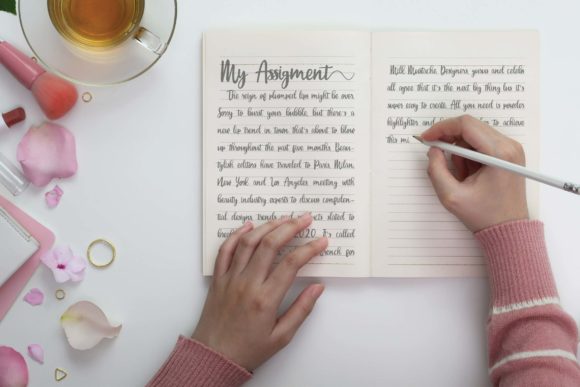 My Assigment
The reign of plumped lips might be over.
Sorry to burst your bubble, but there's a
new lip trend in town that's about to blow
up throughout the next five months. Beau-
tystish editors have traveled to Paris, Milan,
New York and Los Angeles, meeting with
beauty industry experts to discuss confiden-
tial designs, trends and products slated to
2020. It's called
french for
Milk Moustache. Designers, and celebs
all agree that it's the next big thing but it's
super easy to create. All you need is powder
highlighter and to achieve
this mi